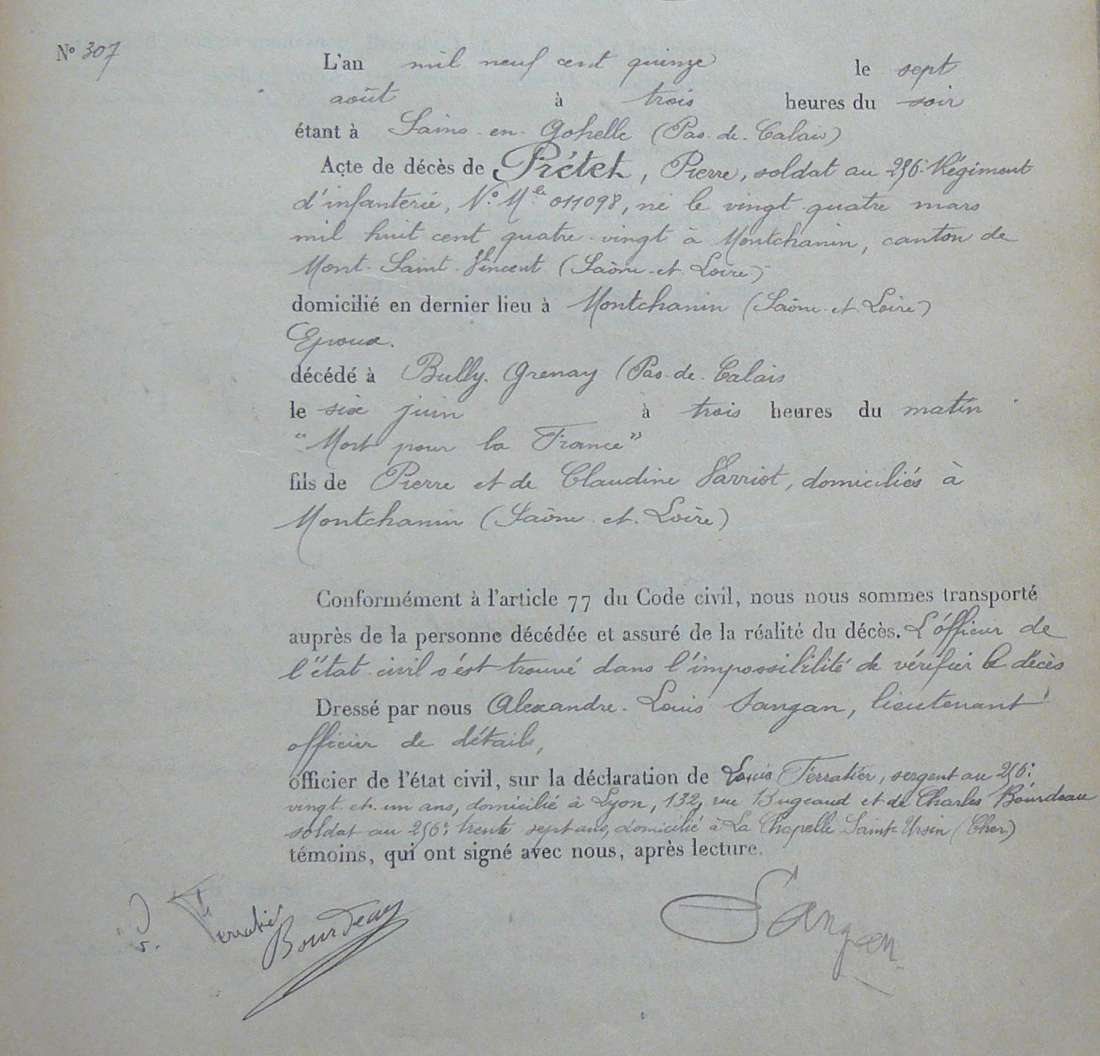 N° 307
L'an mil neuf cent quinze le sept
août à trois heures du soir
étant à Sains-en-Gohelle (Pas-de-Calais)
Acte de décès de Prétet, Pierre, soldat au 256e Régiment
d'infanterie, N° Mle 011098, né le vingt quatre mars
mil huit cent quatre-vingt à Montchanin, canton de
Mont-Saint-Vincent (Saône-et-Loire)
domicilié en dernier lieu à Montchanin (Saône-et-Loire)
Epoux.
décédé à Bully-Grenay (Pas-de-Calais
le six juin à trois heures du matin
"Mort pour la France"
fils de Pierre et de Claudine Varriot, domiciliés à
Montchanin (Saône-et-Loire)
Conformément à l'article 77 du Code civil, nous nous sommes transporté
auprès de la personne décédée et assuré de la réalité du décès. L'officier de
l'état-civil s'est trouvé dans l'impossibilité de vérifier le décès
Dressé par nous Alexandre-Louis Sangan, lieutenant
officier de détails,
officier de l'état civil, sur la déclaration de Louis Ferratier, sergent au 256e
vingt-et-un ans, domicilié à Lyon, 132, rue Bugeaud et de Charles Bourdeau
soldat au 256e trente sept ans, domicilié à La Chapelle Saint-Ursin (Cher)
témoins, qui ont signé avec nous, après lecture.
Ferratier Bourdeau Sangan